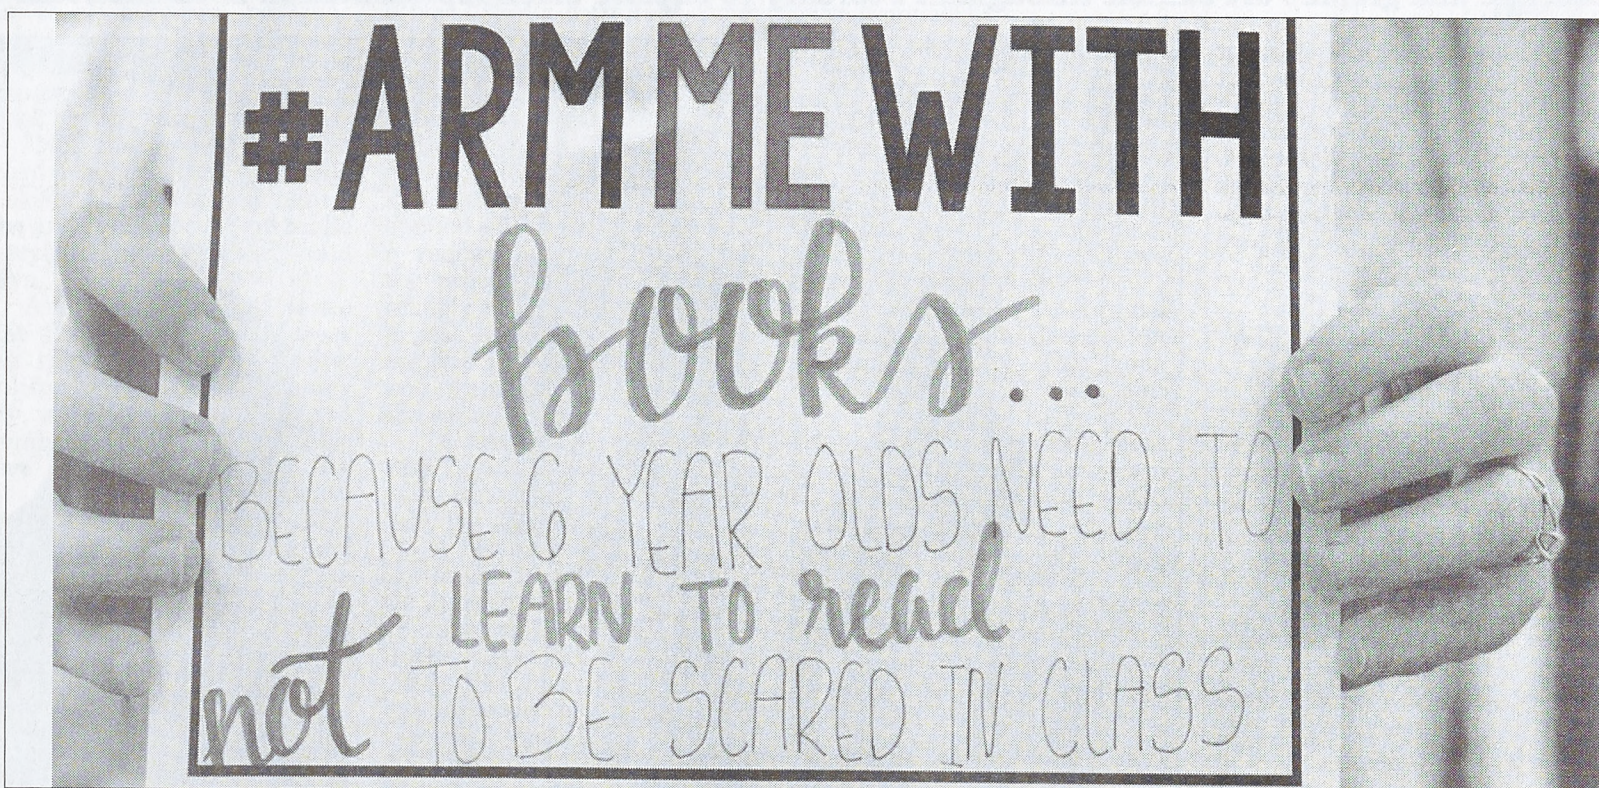 #ARMMEWITH
books...
BECAUSE 6 YEAR OLDS NEED TO
LEARN TO read
not TO BE SCARED IN CLASS